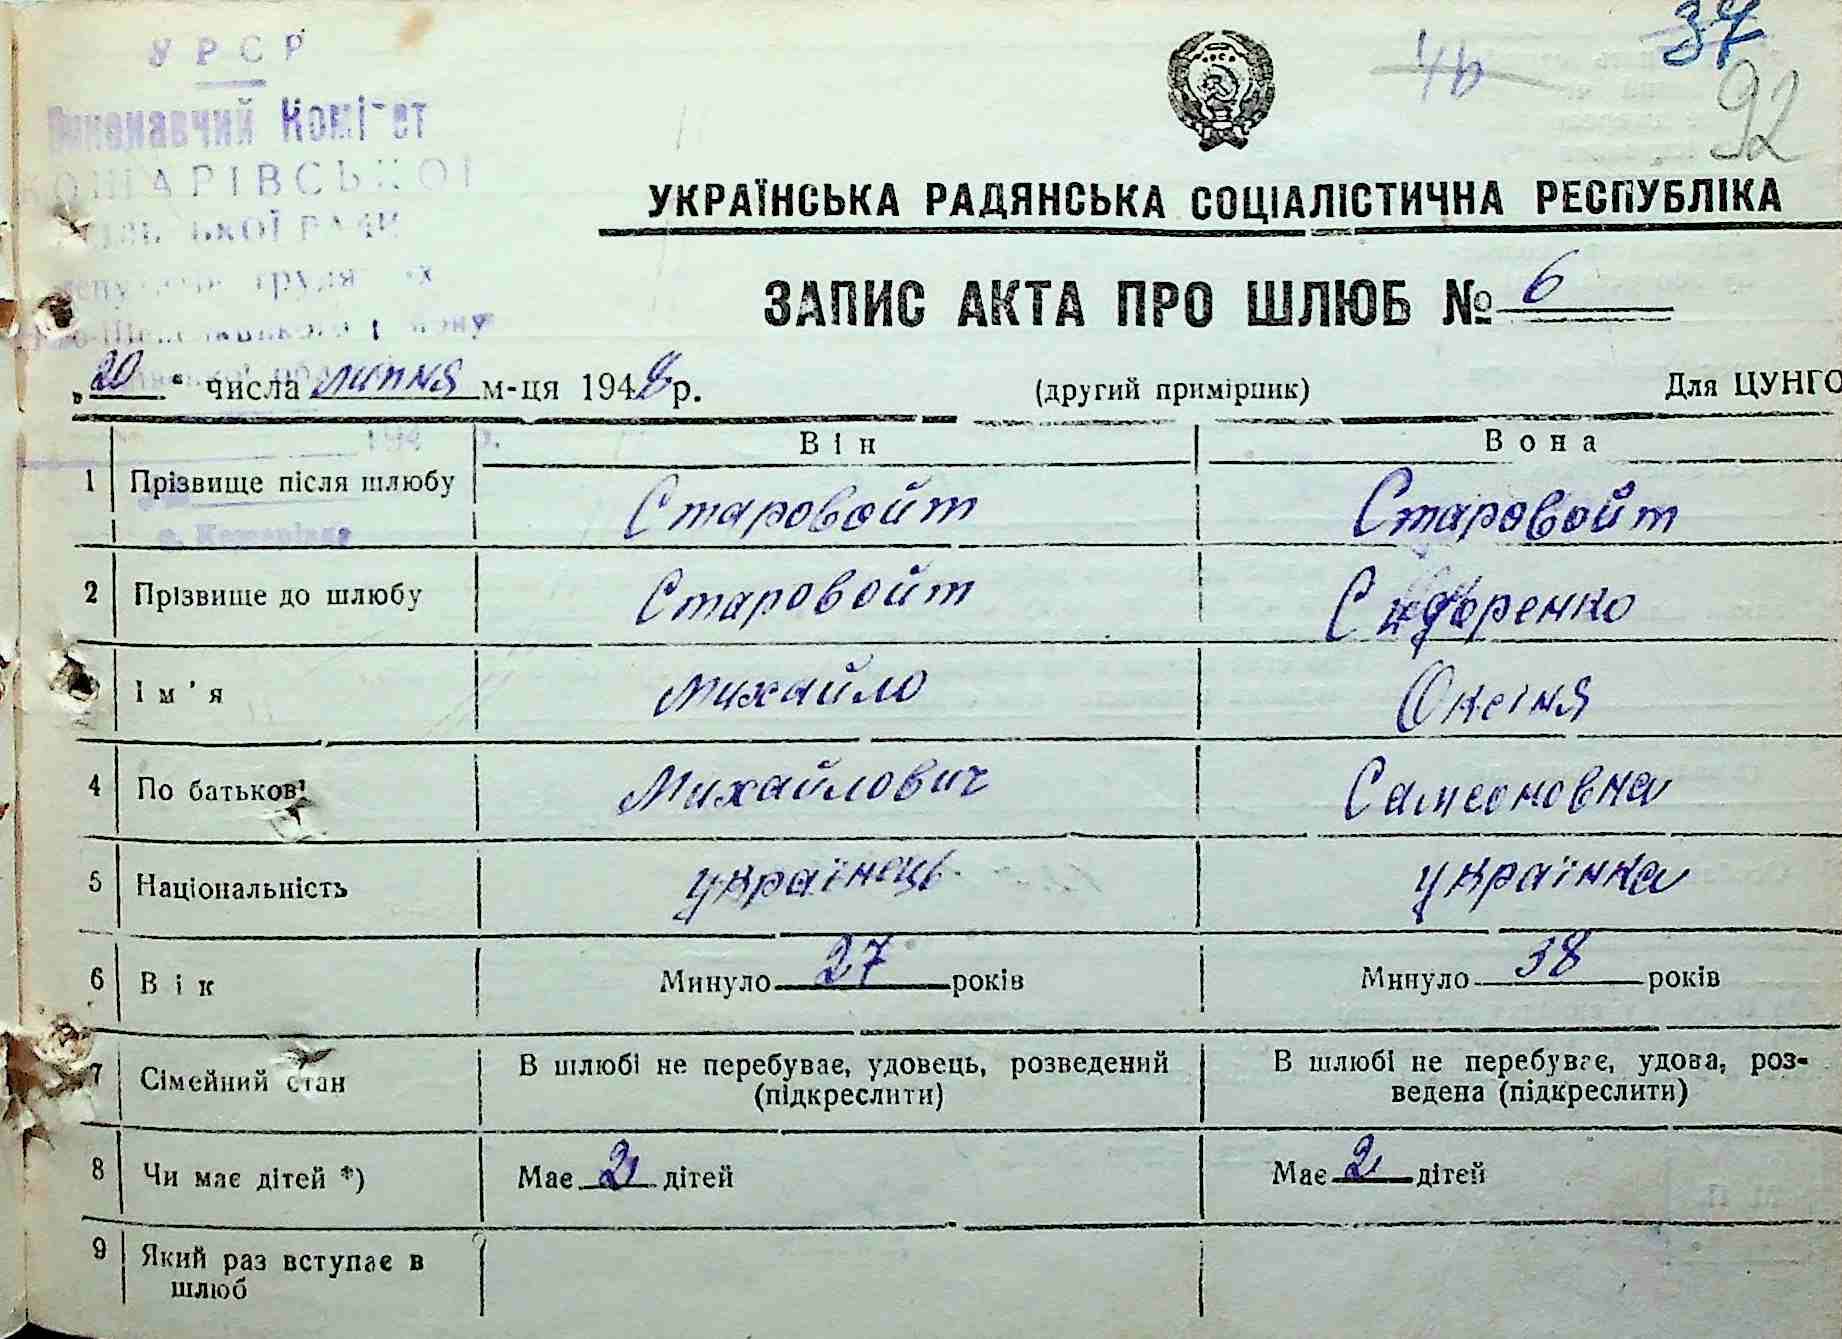 УРСР
Виконавчий Комітет
КОШАРІВСЬКОЇ
37
46
92
УКРАЇНСЬКА РАДЯНСЬКА СОЦІАЛІСТИЧНА РЕСПУБЛІКА
ЗАПИС АКТА ПРО ШЛЮБ № 6
„20“ числа липня м-ця 1948 р. (другий примірник) Для ЦУНГО
Він Вона
1 Прізвище після шлюбу Старовойт Старовойт
2 Прізвище до шлюбу Старовойт Сидоренко
Ім'я Михайло Оксіня
4 По батькові Михайлович Самсоновна
5 Національність українець українка
6 Вік Минуло 27 років Минуло 38 років
7 Сімейний стан В шлюбі не перебуває, удовець, розведений (підкреслити) В шлюбі не перебуває, удова, роз-
ведена (підкреслити)
8 Чи має дітей *) Має 2 дітей Має 2 дітей
9 Який раз вступає в
шлюб